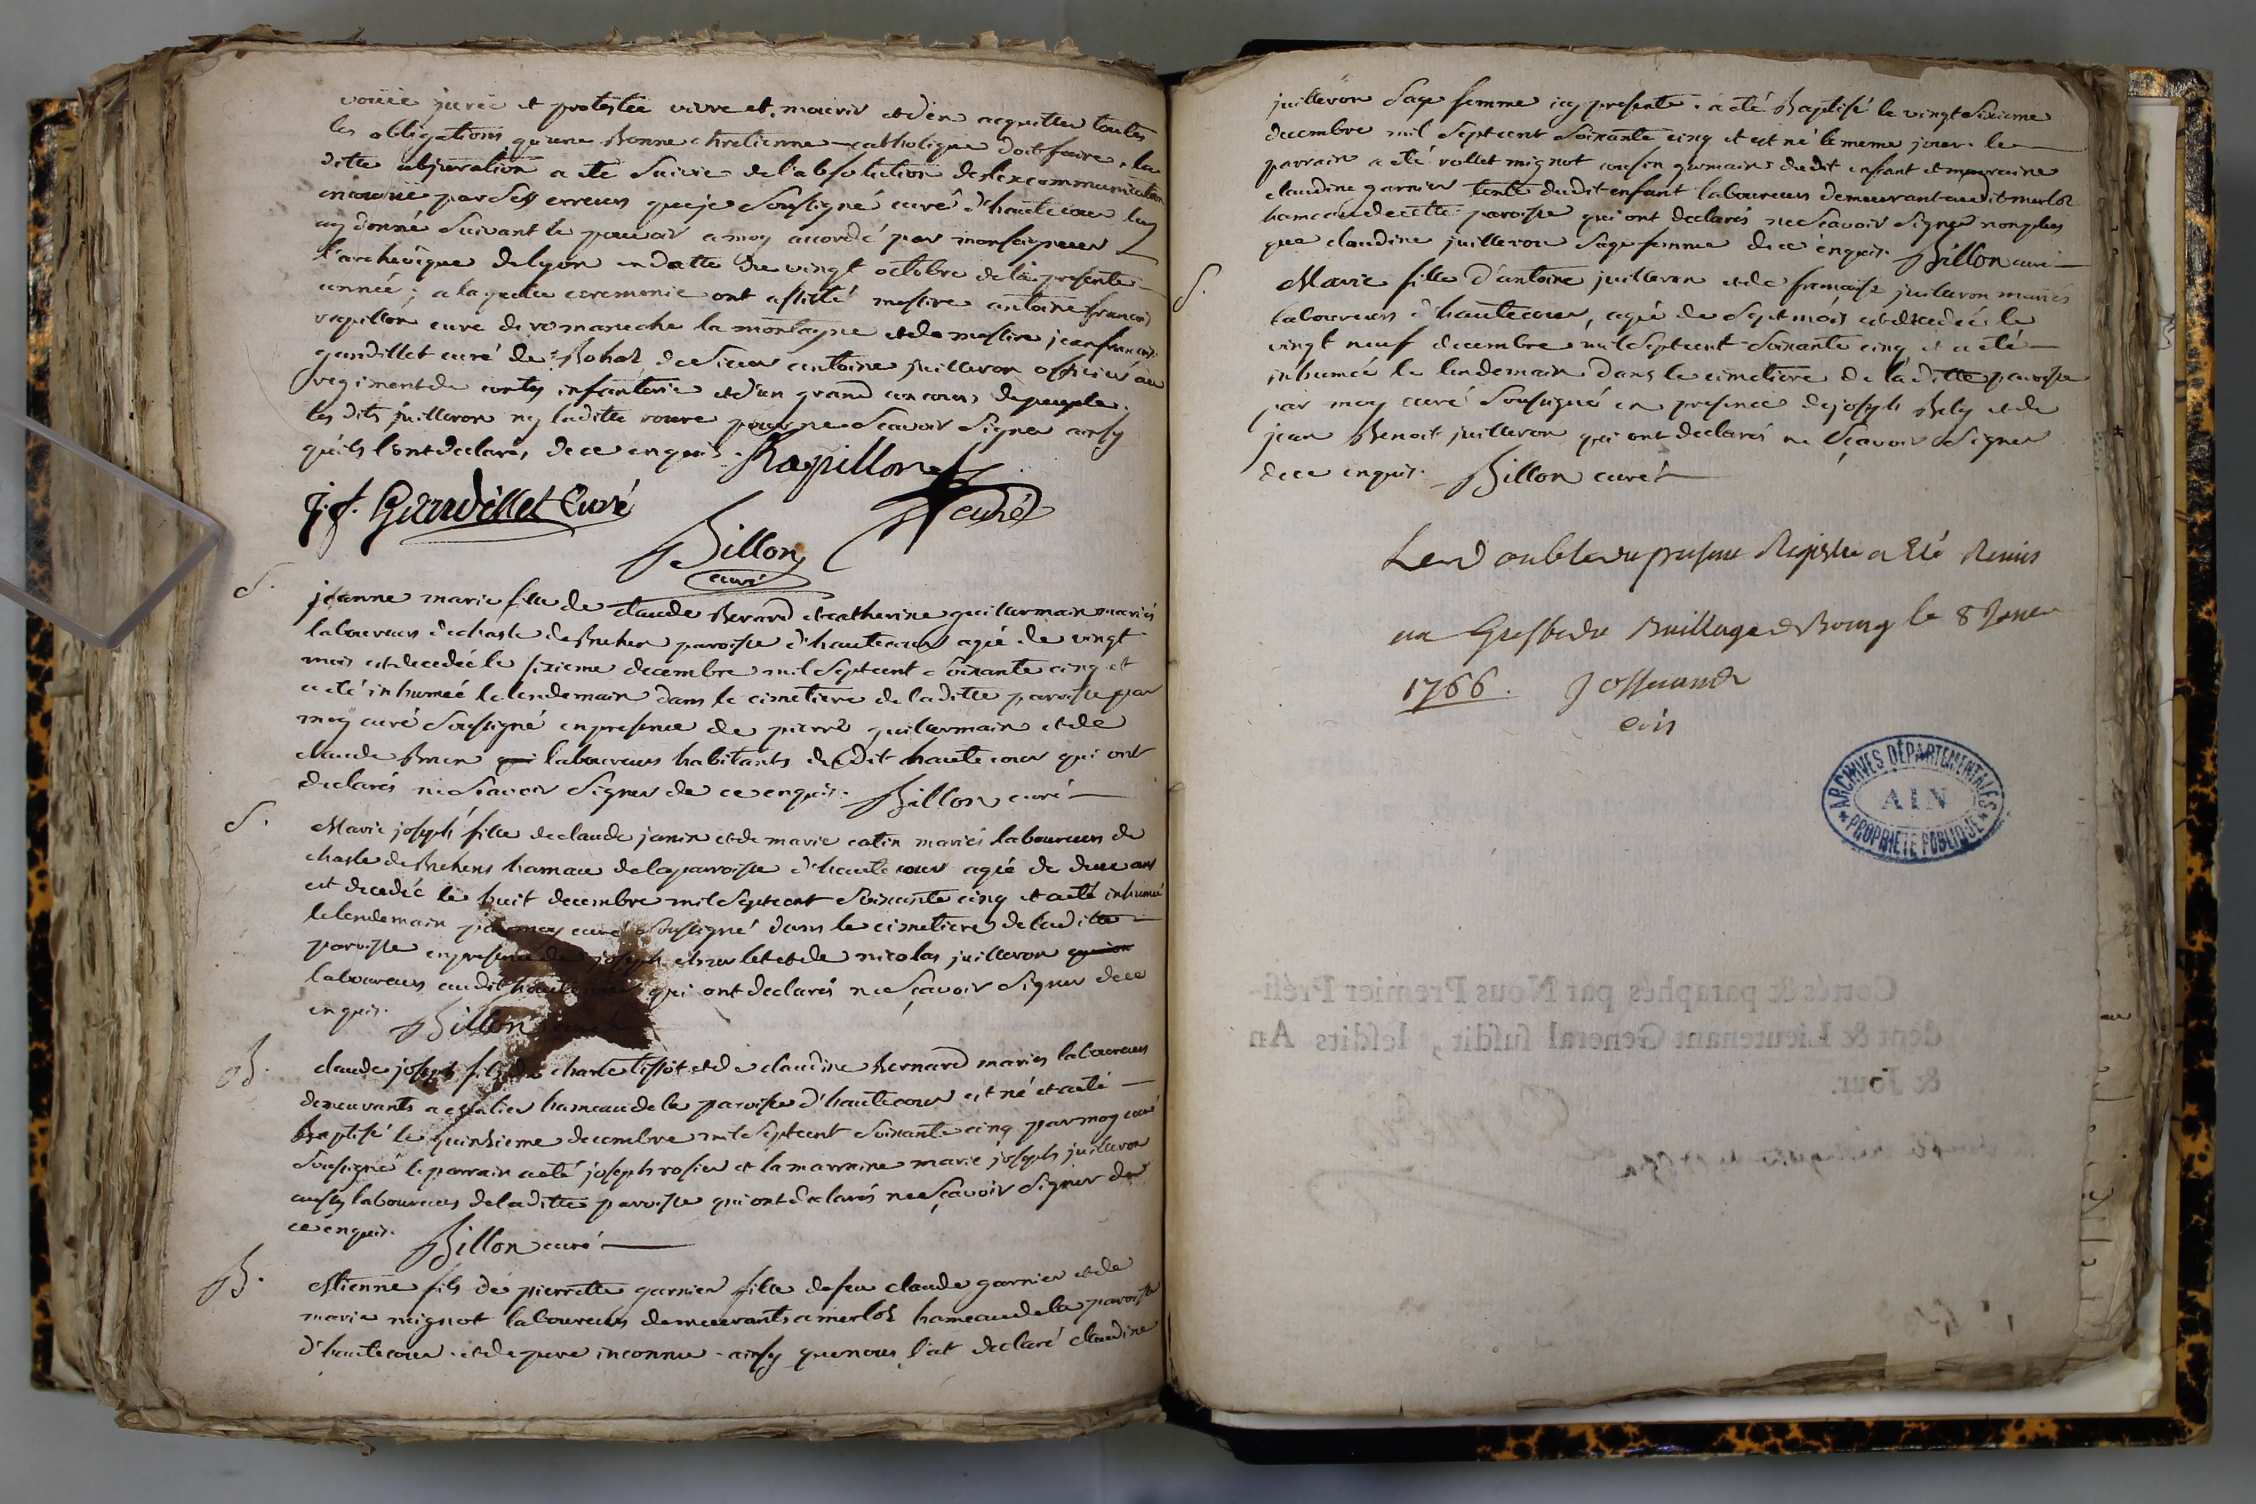 voüée jurée et protestée vivre et mourir et d'en acquitter toutes
les obligations qu'une Bonne chretienne catholique doit faire, la
ditte abjuration a eté Suivie de l'absolution de l'excommunication
encourue par Ses erreurs que je Soussigné curé d'hautecour luy
ay donné Suivant le pouvoir a moy accordé par monseigneur
l'archevêque de lyon en datte du vingt octobre de la presente
année; a laquelle ceremonie ont assisté messire antoine françois
rapillon curé de romaneche la montagne et de messire jean françois
gandillet curé de Bohas de Sieur antoine juilleron officier au
regiment de infanterie et d'un grand concours de peuple.
les dits juilleron ny laditte roure pour ne Scavoir Signer ainsy
qu'ils l'ont declarés de ce enquis. Rapillon
curé
j. f. Gandillet Curé
Billon
curé
S.
jeanne marie fille de claude Berard et catherine guillermain mariés
laboureurs de chasle de Brehen paroisse d'hautecour agée de vingt
mois est decedée le sixieme decembre mil Septcent Soixante cinq et
a eté inhumeé le lendemain dans le cimetiere de laditte paroisse par
moy curé Soussigné en presence de pierre guillermain et de
claude Brun qui laboureurs habitants dudit hautecour qui ont
declarés ne Scavoir Signer de ce enquis. Billon curé
S.
Marie joseph fille de claude janin et de marie catin mariés laboureurs de
chasle de Brehens hameau de la paroisse d'hautecour agée de deux ans
est decedée le huit decembre mil Septcent Soixante cinq et a eté inhumé
le lendemain par moy curé Soussigné dans le cimetiere de laditte
paroisse en presence de joseph et de nicolas juilleron
laboureurs audit hautecour qui ont declarés ne Sçavoir Signer de ce
enquis. Billon curé
B.
claude joseph fils de charle tissot et de claudine Bernard mariés laboureurs
demeurants a hameau de la paroisse d'hautecour est né et a eté
Baptisé le quinzieme decembre mil Septcent Soixante cinq par moy curé
Soussigné le parrain a eté joseph rosier et la marraine marie joseph juilleron
aussy laboureurs de laditte paroisse qui ont declarés ne Sçavoir Signer de
ce enquis. Billon curé
B.
Etienne fils de pierrette garnier fille de feu claude garnier et de
marie mignot laboureurs demeurants a merloz hameau de la paroisse
d'hautecour et de pere inconnu ainsy que nous l'at declaré claudine
juilleron Sage femme icy presente. a eté Baptisé le vingt Sixieme
decembre mil Septcent Soixante cinq et est né le meme jour. le
parrain a eté rollet mignot cousin germain dudit enfant et marraine
claudine garnier tante dudit enfant laboureurs demeurant audit merloz
hameau de cette paroisse qui ont declarés ne Scavoir Signer non plus
que claudine juilleron Sage femme de ce enquis. Billon curé
S.
Marie fille d'antoine juilleron et de françoise juilleron mariés
laboureurs d'hautecour, agée de Sept mois est decedée le
vingt neuf decembre mil Septcent Soixante cinq et a eté
inhumée le lendemain dans le cimetiere de la ditte paroisse
par moy curé Soussigné en presence de joseph Bely et de
jean Benoit juilleron qui ont declarés ne Sçavoir Signer
de ce enquis. Billon curé
Le Double du present Registre a Eté Remis
au Greffe du Bailliage de Bourg le 8 Janer
1766.
ARCHIVES DÉPARTEMENTALES
AIN
PROPRIÉTÉ PUBLIQUE
Cottés & paraphés par Nous Premier Prési-
dent & Lieutenant General susdit, lesdits An
& Jour.